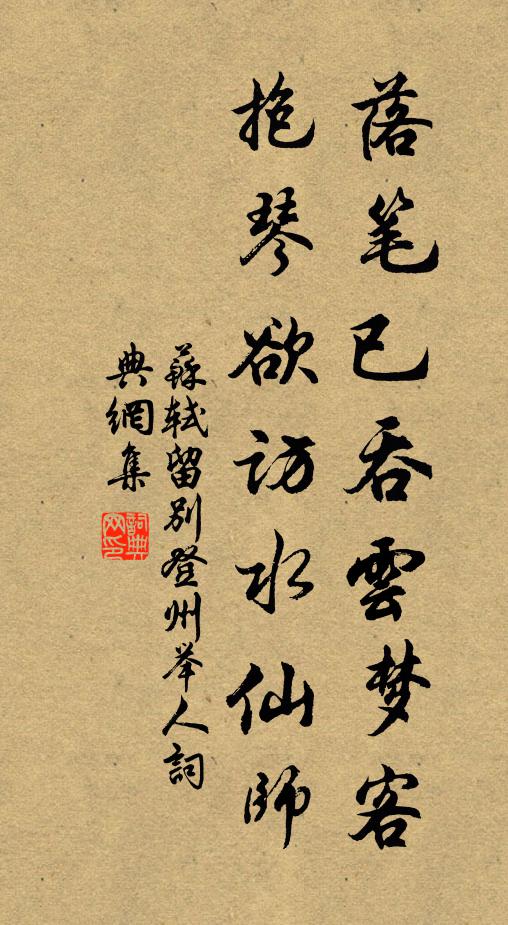 落笔已吞雲梦客
抱琴欲访水仙師
蘇轼留别登州举人詞
典網集
詞典
网印